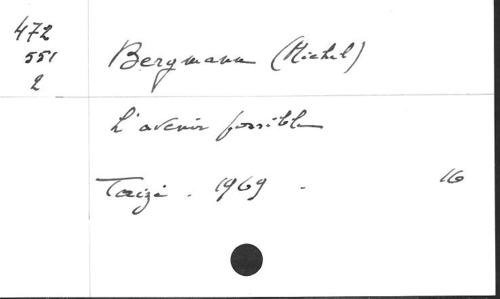 472
551
2
Bergmann (Michel)
L'avenir possible
Taizé. 1969. 16